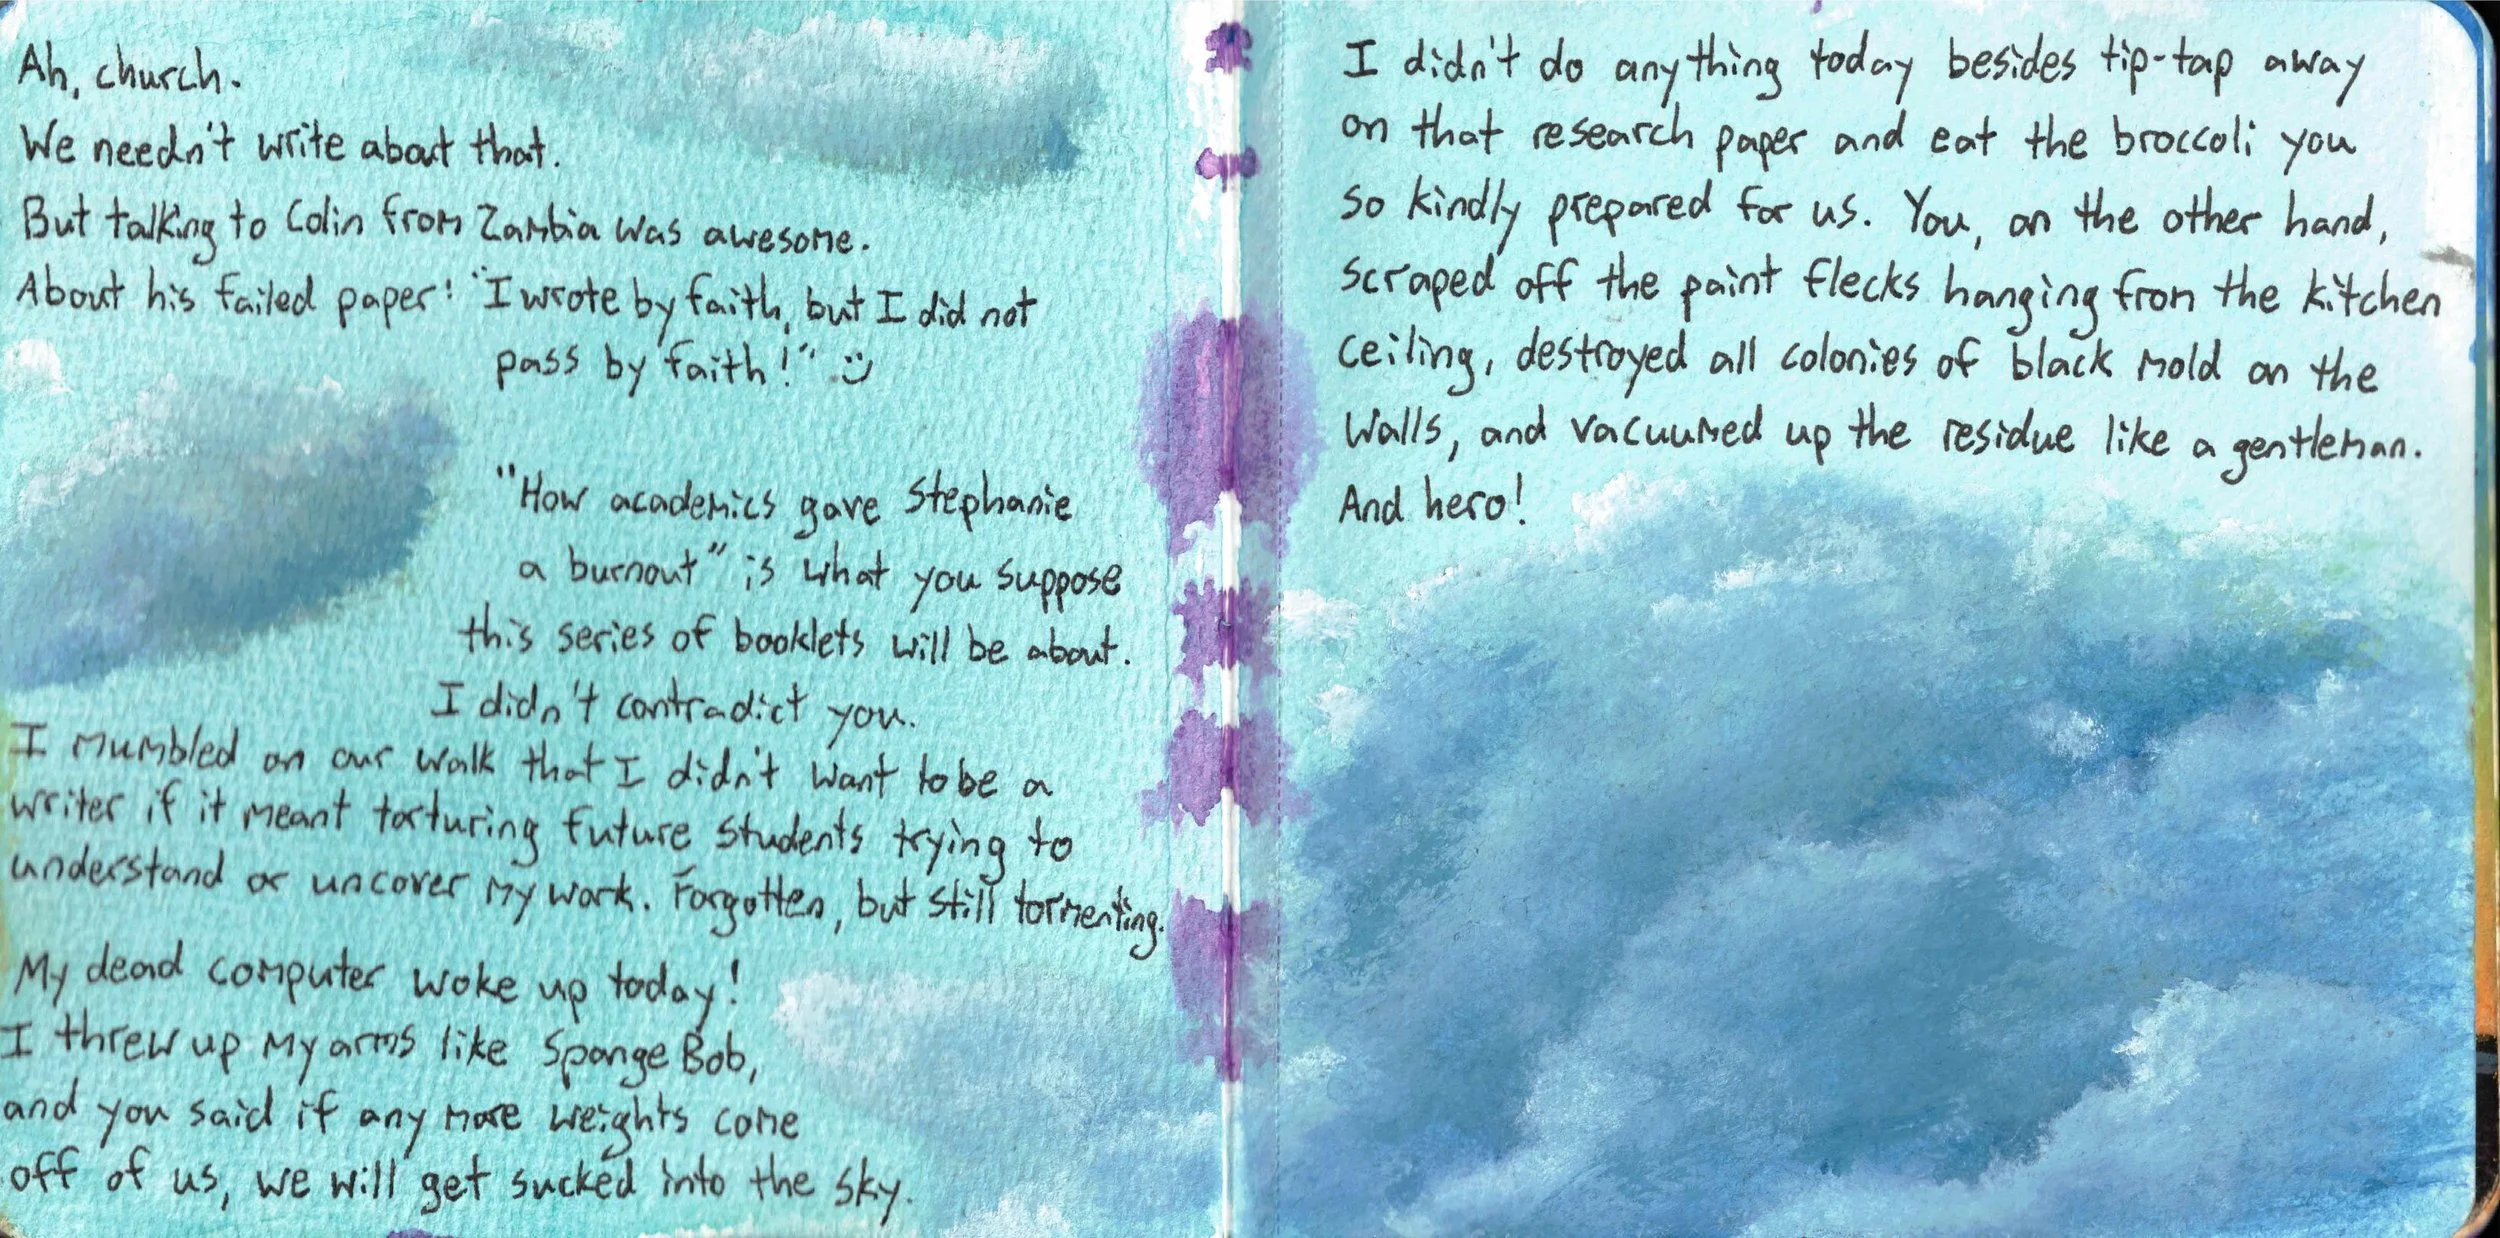 Ah, church.
We needn't write about that.
But talking to Colin from Zambia was awesome.
About his failed paper: "I wrote by faith, but I did not
pass by faith!" :)
"How academics gave Stephanie
a burnout" is what you suppose
this series of booklets will be about.
I didn't contradict you.
I mumbled on our walk that I didn't want to be a
writer if it meant torturing future students trying to
understand or uncover my work. Forgotten, but still tormenting.
My dead computer woke up today!
I threw up my arms like SpongeBob,
and you said if any more weights come
off of us, we will get sucked into the sky.
I didn't do anything today besides tip-tap away
on that research paper and eat the broccoli you
so kindly prepared for us. You, on the other hand,
scraped off the paint flecks hanging from the kitchen
ceiling, destroyed all colonies of black mold on the
walls, and vacuumed up the residue like a gentleman.
And hero!